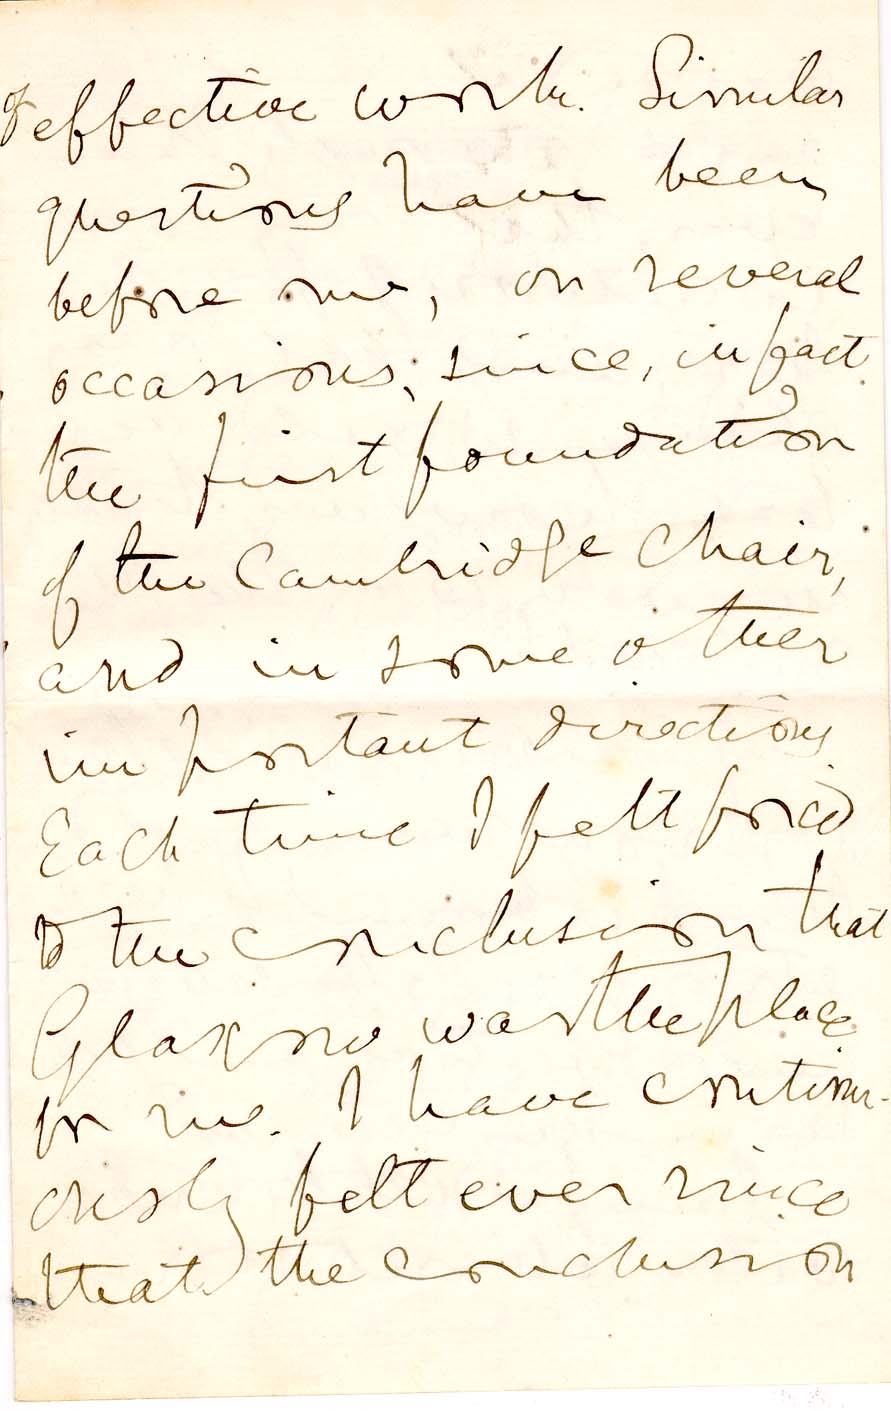 of effective work. Similar
questions have been
before me, on several
occasions, since, in fact
the first foundation
of the Cambridge Chair,
and in some other
important directions
Each time I felt forced
to the conclusion that
Glasgow was the place
for me. I have continu-
ously felt ever since
that the conclusion